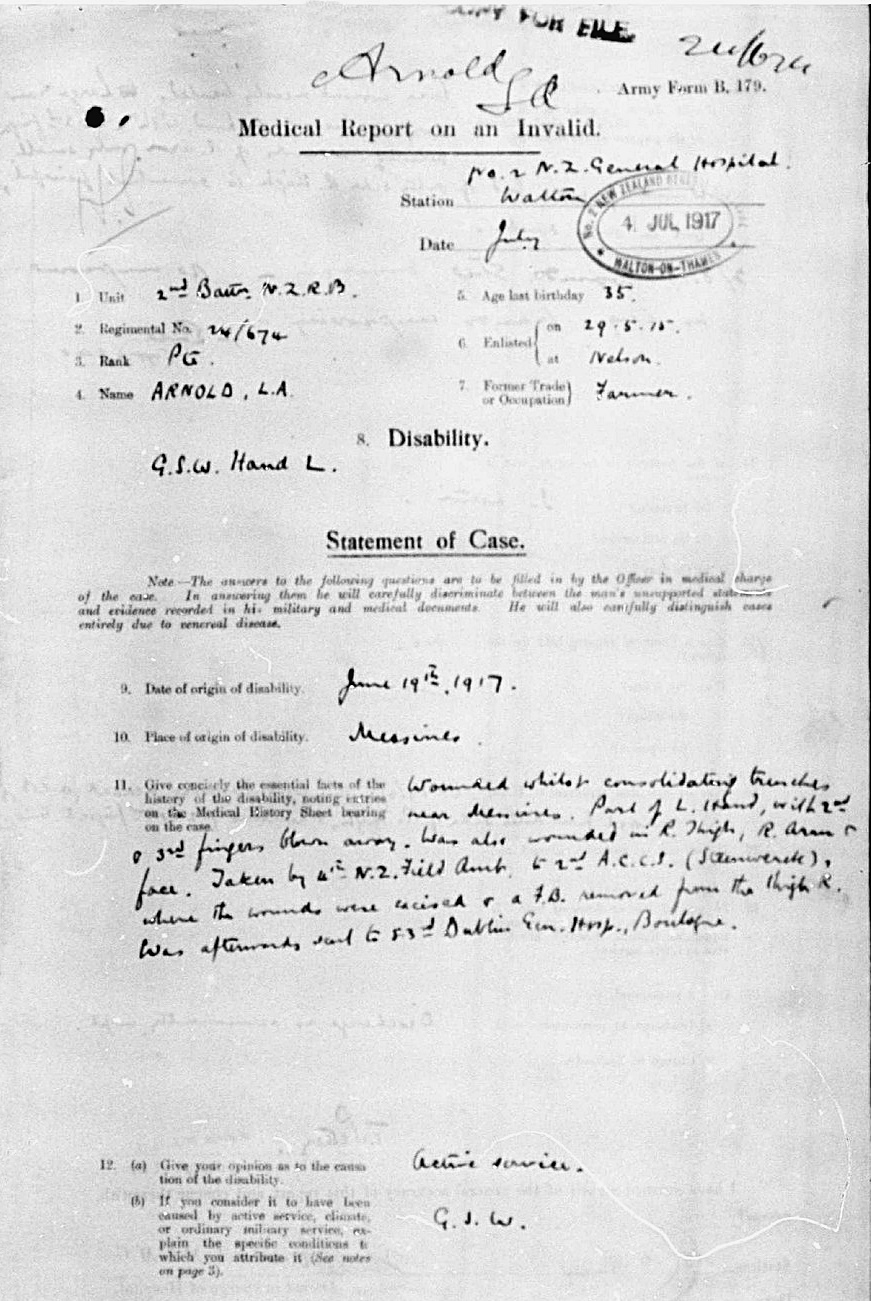 FOR FILE
Arnold
24/674
Army Form B. 179.
Medical Report on an Invalid.
No. 2 N.Z. General Hospital.
Station Walton
No. 2 NEW ZEALAND
4 JUL 1917
WALTON-ON-THAMES
Date July
1. Unit 2nd Battn N.Z.R.B.
5. Age last birthday 35.
2. Regimental No. 24/674
6. Enlisted { on 29.5.15.
at Nelson.
3. Rank Pte.
4. Name ARNOLD, L.A.
7. Former Trade } Farmer.
or Occupation
8. Disability.
G.S.W. Hand L.
Statement of Case.
Note.—The answers to the following questions are to be filled in by the Officer in medical charge
of the case. In answering them he will carefully discriminate between the man's unsupported statements
and evidence recorded in his military and medical documents. He will also carefully distinguish cases
entirely due to venereal disease.
9. Date of origin of disability. June 19th, 1917.
10. Place of origin of disability. Messines.
11. Give concisely the essential facts of the
history of the disability, noting entries
on the Medical History Sheet bearing
on the case.
Wounded whilst consolidating trenches
near Messines. Part of L. Hand, with 2nd
& 3rd fingers blown away. Was also wounded in R. Thigh, R. Arm &
face. Taken by 4th N.Z. Field Amb. to 2nd A.C.C.S. (Steenwerck),
where the wounds were excised & a F.B. removed from the thigh R.
Was afterwards sent to 83rd Dublin Gen. Hosp., Boulogne.
12. (a) Give your opinion as to the causa-
tion of the disability.
Active service.
(b) If you consider it to have been
caused by active service, climate,
or ordinary military service, ex-
plain the specific conditions to
which you attribute it (See notes
on page 3).
G.S.W.